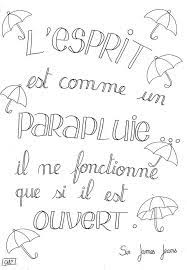 L'ESPRIT
est comme un
PARAPLUIE ...
il ne fonctionne
que si il est
OUVERT.
Sir James Jeans